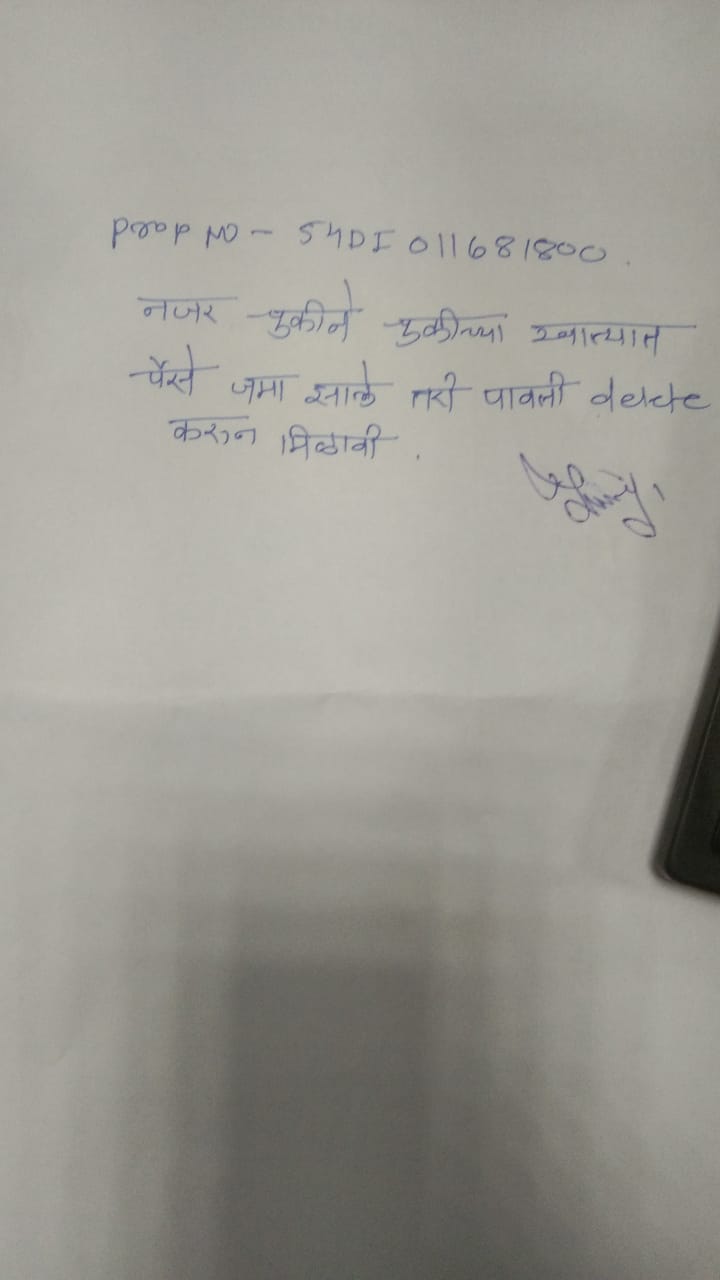 Prop No - SHDI011681800.
नजर चुकीने चुकीच्या खात्यात
पैसे जमा झाले तरी पावती delete
करून मिळावी.